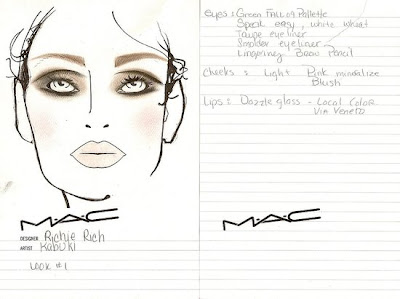 M·A·C
DESIGNER Richie Rich
ARTIST Kabuki
Look #1
eyes: Green Fall 09 Pallette
Speak easy, white wheat
Taupe eyeliner
Smolder eyeliner
Lingering Brow Pencil
Cheeks: Light Pink mineralize
Blush
Lips: Dazzle glass - Local Color
Via Veneto
M·A·C